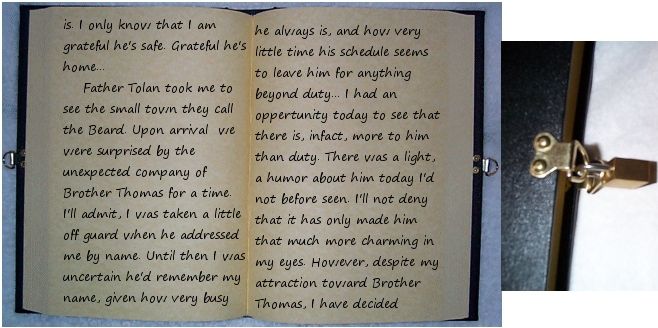 is. I only know that I am
grateful he's safe. Grateful he's
home...
Father Tolan took me to
see the small town they call
the Beard. Upon arrival we
were surprised by the
unexpected company of
Brother Thomas for a time.
I'll admit, I was taken a little
off guard when he addressed
me by name. Until then I was
uncertain he'd remember my
name, given how very busy
he always is, and how very
little time his schedule seems
to leave him for anything
beyond duty... I had an
oppertunity today to see that
there is, infact, more to him
than duty. There was a light,
a humor about him today I'd
not before seen. I'll not deny
that it has only made him
that much more charming in
my eyes. However, despite my
attraction toward Brother
Thomas, I have decided